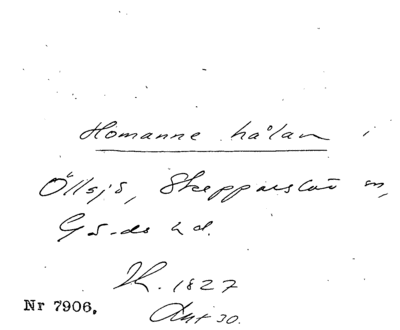 Homanne hålan i
Öllsjö, Skepparslöv sn,
Gärds hd.
H. 1827
Nr 7906.
Art 30.